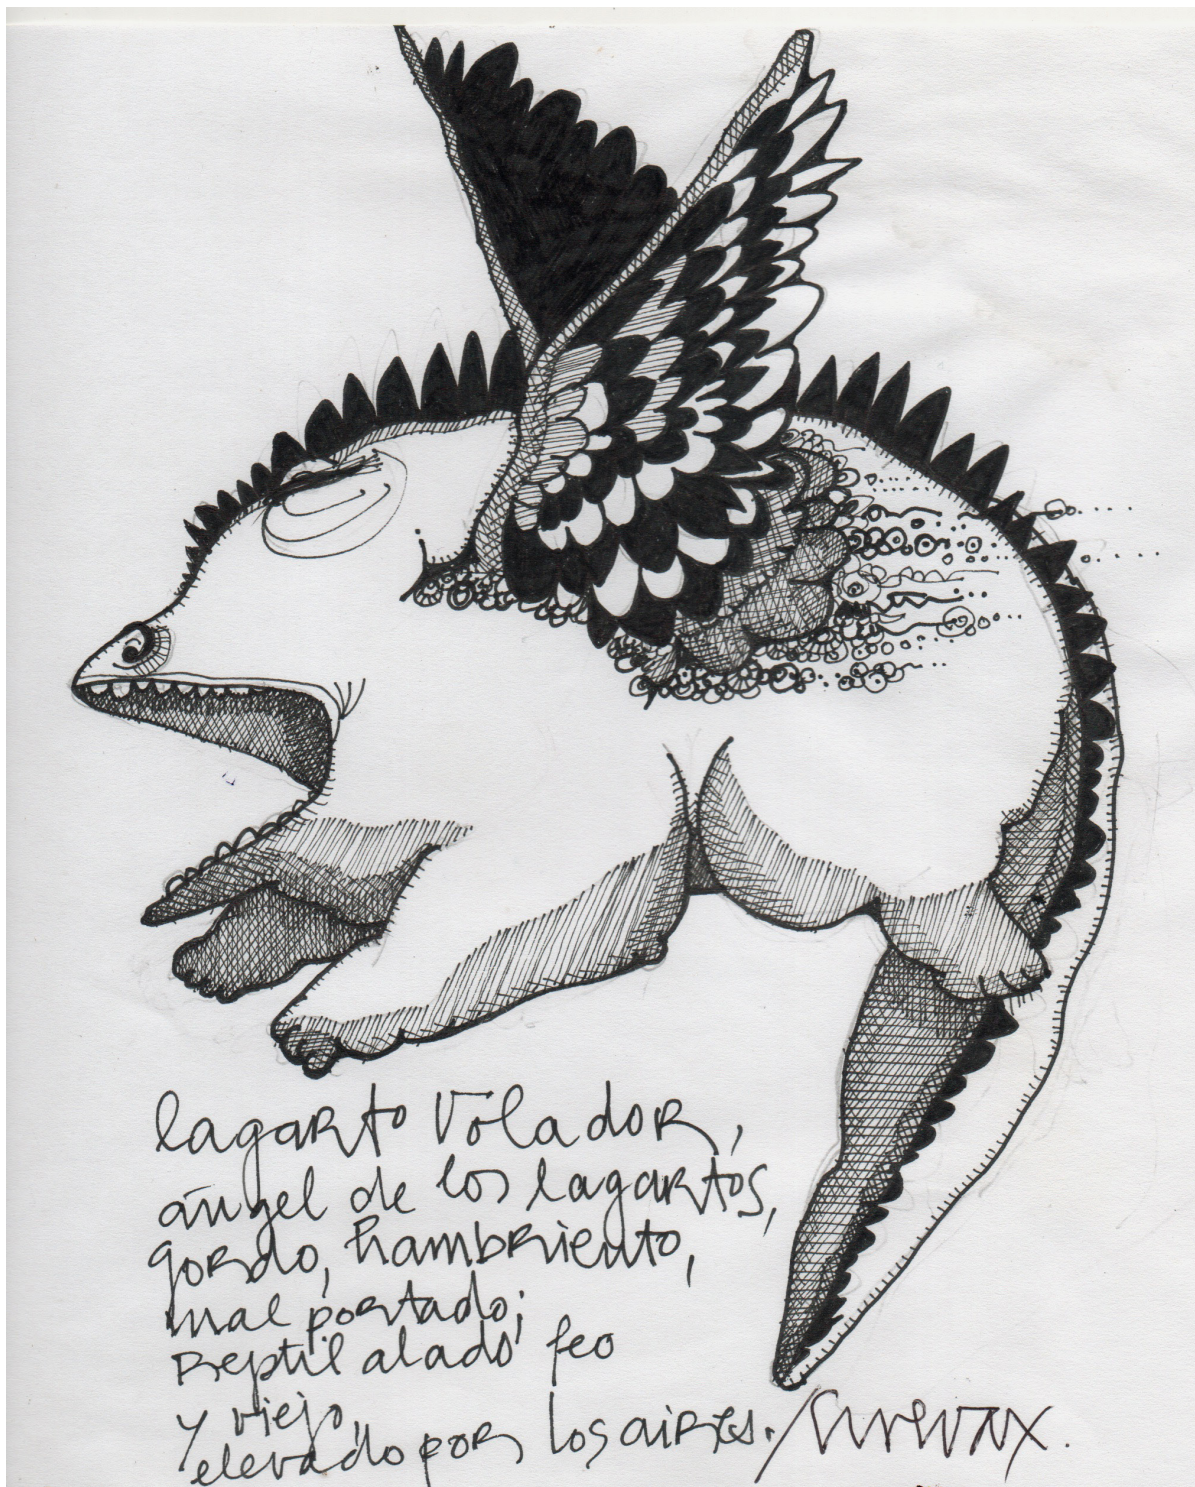 lagarto volador,
ángel de los lagartos,
gordo, hambriento,
mal portado;
Reptil alado feo
y viejo,
elevado por los aires.